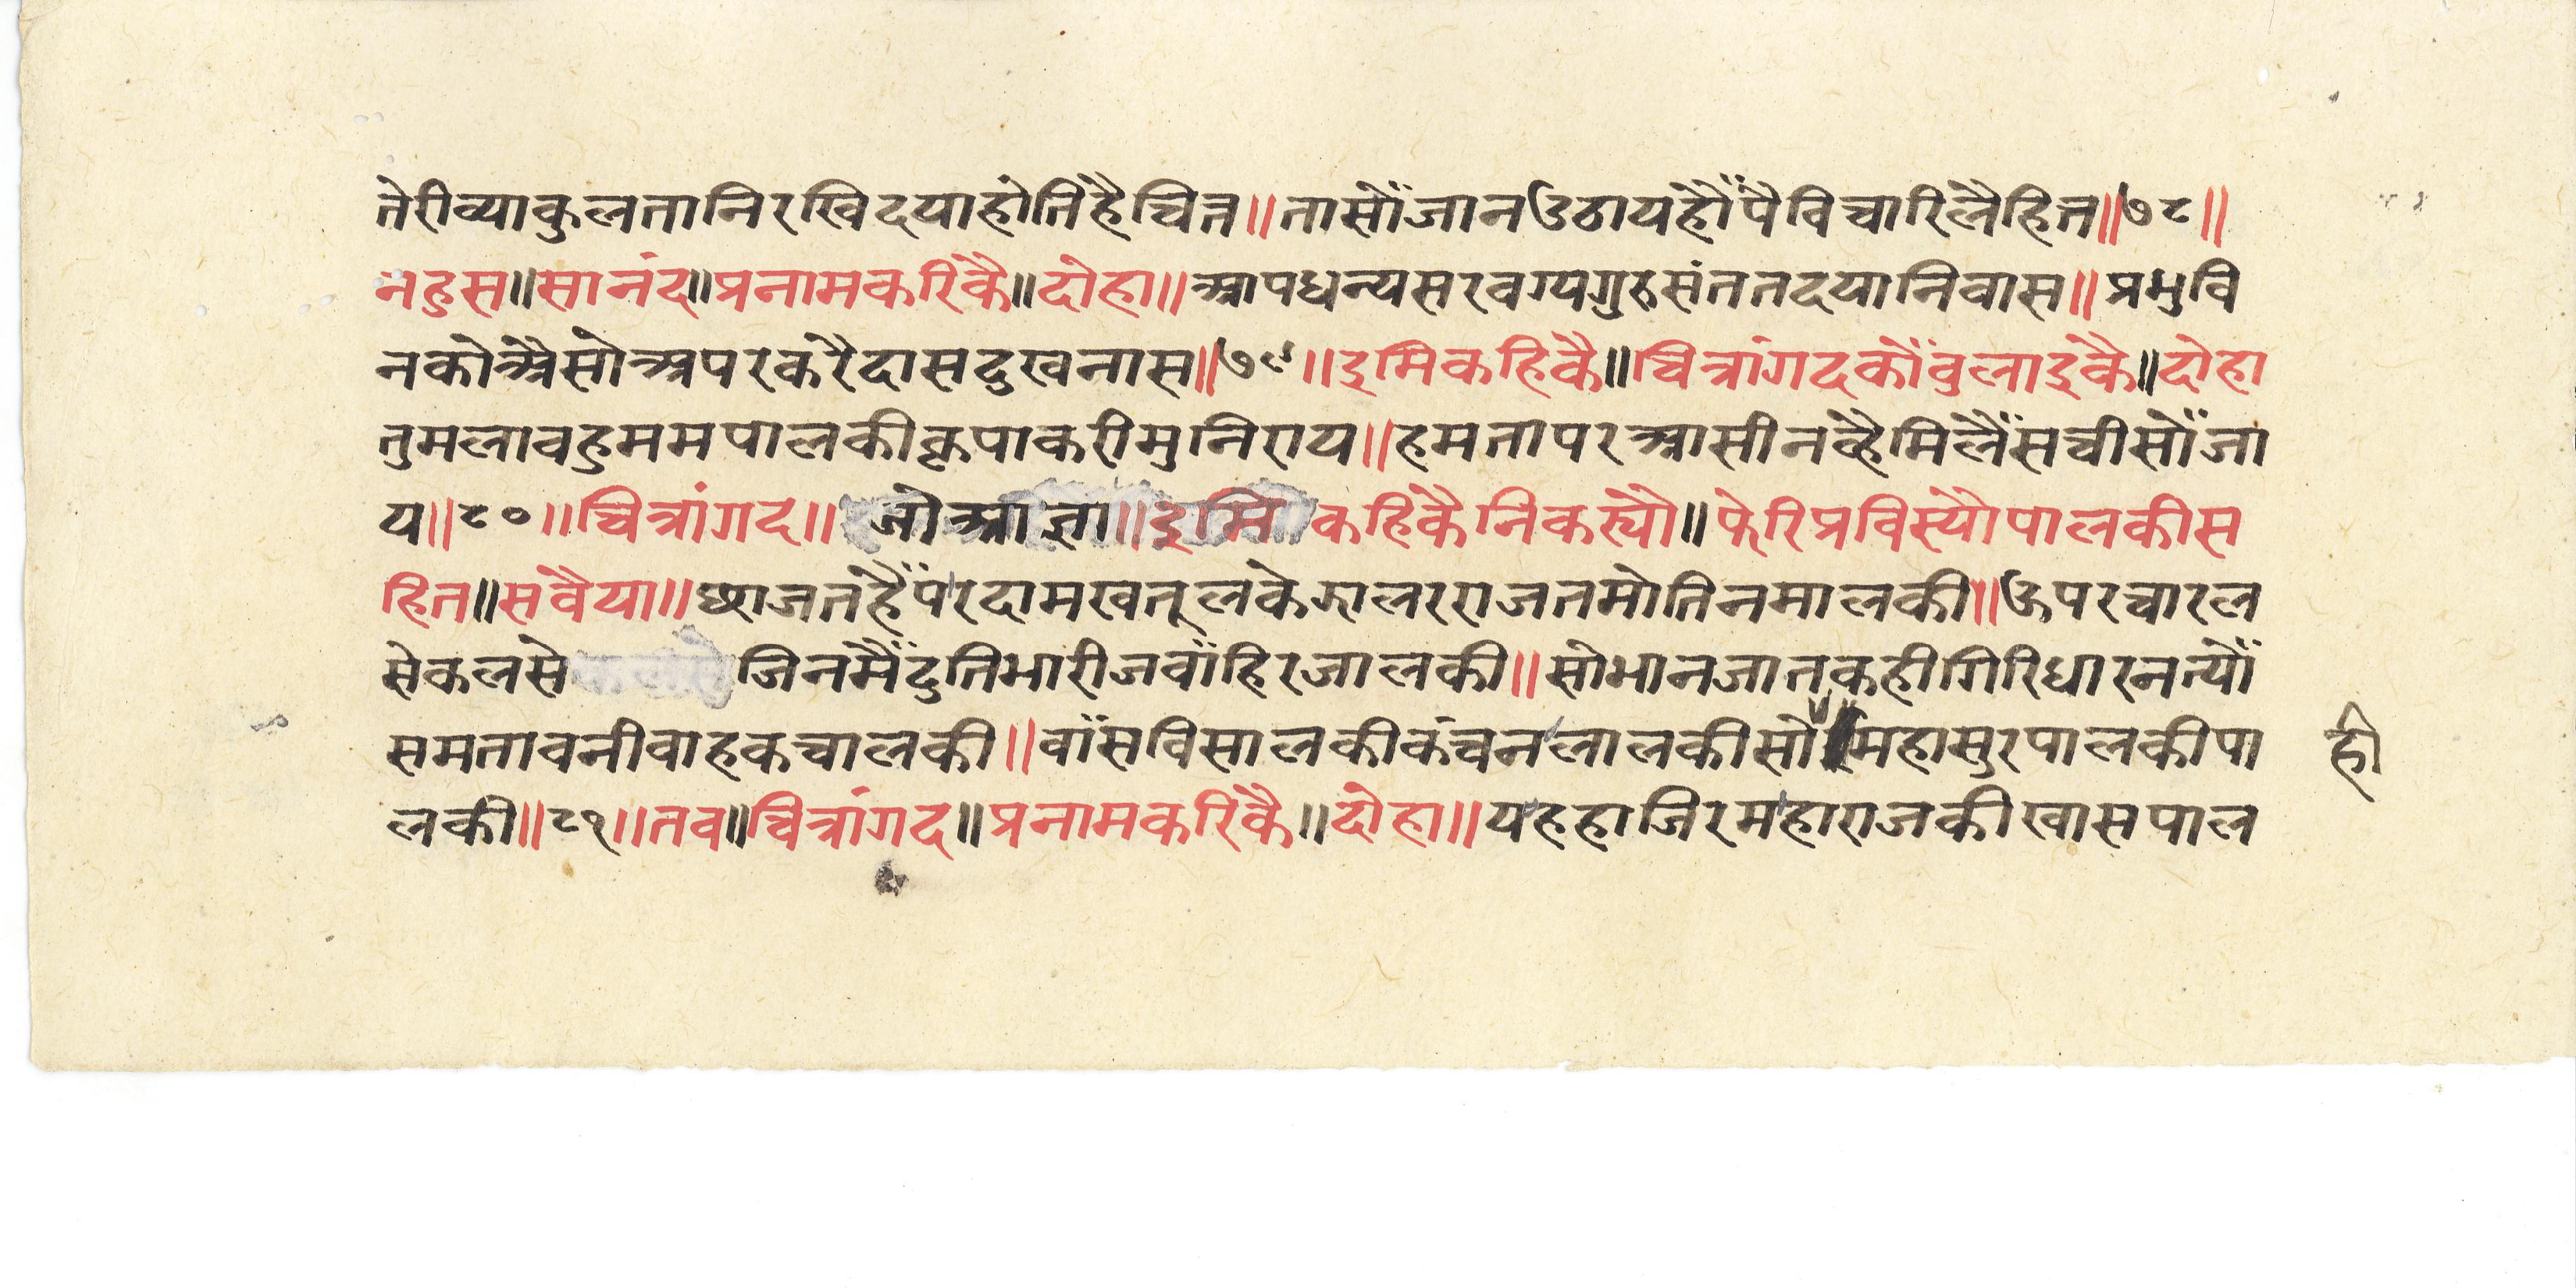 तेरीव्याकुलतानिरखिदयाहोतिहैचित्त॥तासोँजानउठायहौँपैविचारिलैहित॥७८॥
नहुस॥सानंद॥प्रनामकरिकै॥दोहा॥आपधन्यसरवग्यगुरुसंततदयानिवास॥प्रभुवि
नकोअैसोअपरकरैदासदुखनास॥७९॥इमिकहिकै॥चित्रांगदकोँबुलाइकै॥दोहा
तुमलावहुममपालकीकृपाकरीमुनिराय॥हमतापरआसीनव्हैमिलैँसचीसोँजा
य॥८०॥चित्रांगद॥जोआज्ञा॥इमिकहिकैनिकस्यौ॥फेरिप्रविस्यौपालकीस
हित॥सवैया॥छाजतहैँपरदामखतूलकेझालरराजतमोतिनमालकी॥ऊपरचारल
सेकलसेजिनमैँदुतिभारीजवाँहिरजालकी॥सोभानजातकहीगिरिधारनत्योँ
समतावनीवाहकचालकी॥वाँसविसालकीकंचनलालकीसोमहासुरपालकीपा
ही
लकी॥८१॥तव॥चित्रांगद॥प्रनामकरिकै॥दोहा॥यहहाजिरमहाराजकीखासपाल